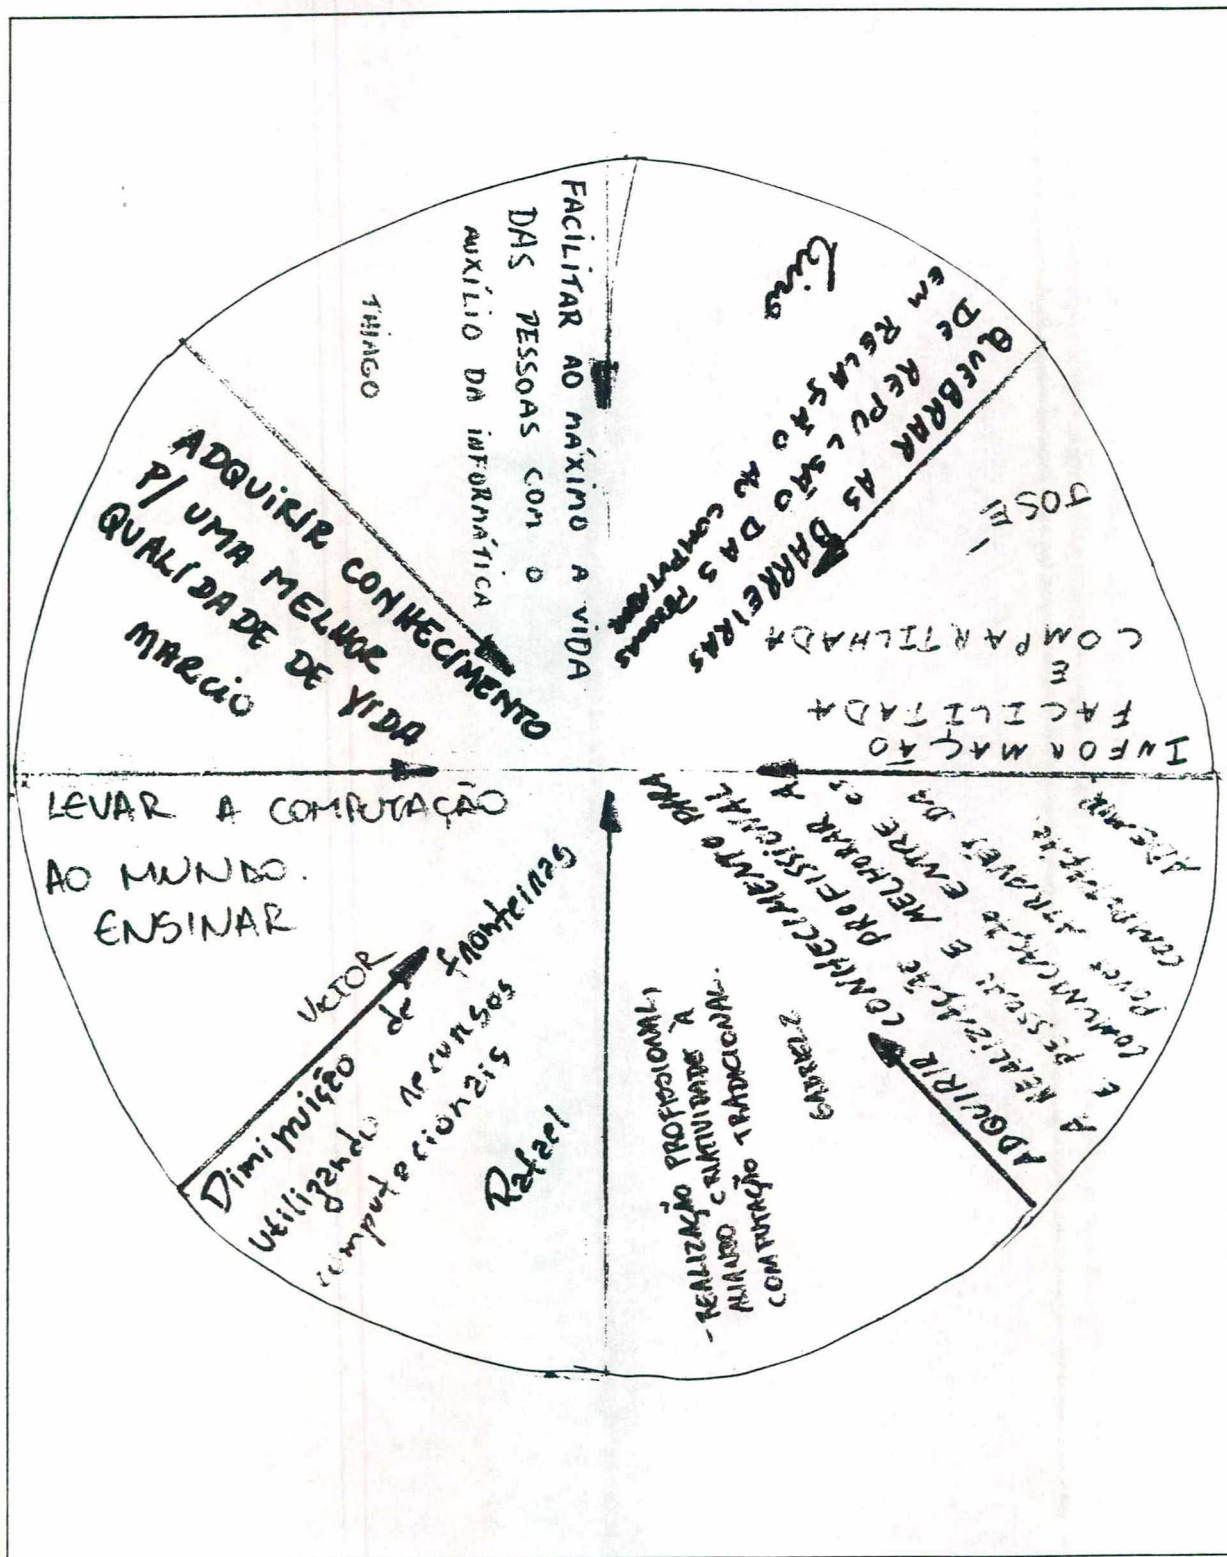 FACILITAR AO MÁXIMO A VIDA
DAS PESSOAS COM O
AUXÍLIO DA INFORMÁTICA
THIAGO
QUEBRAR AS BARREIRAS
DE REPULSÃO DAS PESSOAS
EM RELAÇÃO A COMPUTAÇÃO
INFORMAÇÃO
FACILITADA
E
COMPARTILHADA
JOSÉ
ADQUIRIR CONHECIMENTO PARA
A REALIZAÇÃO PROFISSIONAL
E PESSOAL E MELHORAR A
COMUNICAÇÃO ENTRE OS
POVOS ATRAVÉS DA
COMPUTAÇÃO.
ADEMIR
- REALIZAÇÃO PROFISSIONAL,
ALIANDO CRIATIVIDADE À
COMPUTAÇÃO TRADICIONAL.
VETOR
Diminuição de fronteiras
utilizando recursos
computacionais
Rafael
LEVAR A COMPUTAÇÃO
AO MUNDO.
ENSINAR
ADQUIRIR CONHECIMENTO
P/ UMA MELHOR
QUALIDADE DE VIDA
MARCIO